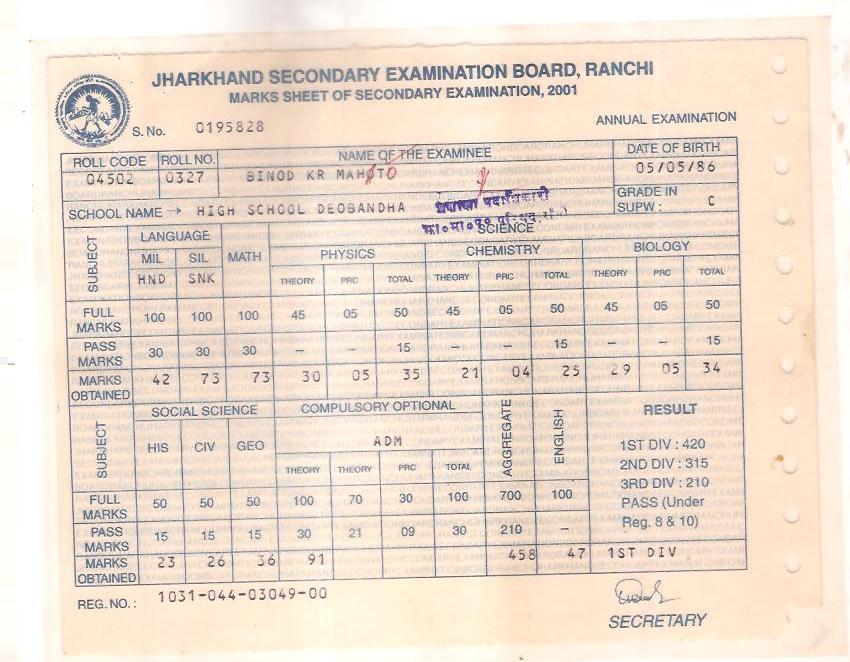 JHARKHAND SECONDARY EXAMINATION BOARD, RANCHI
MARKS SHEET OF SECONDARY EXAMINATION, 2001
S. No. 0195828 ANNUAL EXAMINATION
ROLL CODE ROLL NO. NAME OF THE EXAMINEE DATE OF BIRTH
04502 0327 BINOD KR MAHATO 05/05/86
SCHOOL NAME → HIGH SCHOOL DEOBANDHA GRADE IN SUPW : C
SUBJECT LANGUAGE MATH SCIENCE
MIL SIL PHYSICS CHEMISTRY BIOLOGY
HND SNK THEORY PRC TOTAL THEORY PRC TOTAL THEORY PRC TOTAL
FULL MARKS 100 100 100 45 05 50 45 05 50 45 05 50
PASS MARKS 30 30 30 – – 15 – – 15 – – 15
MARKS OBTAINED 42 73 73 30 05 35 21 04 25 29 05 34
SUBJECT SOCIAL SCIENCE COMPULSORY OPTIONAL AGGREGATE ENGLISH RESULT
HIS CIV GEO ADM
THEORY THEORY PRC TOTAL
1ST DIV : 420
2ND DIV : 315
3RD DIV : 210
PASS (Under
Reg. 8 & 10)
FULL MARKS 50 50 50 100 70 30 100 700 100
PASS MARKS 15 15 15 30 21 09 30 210 –
MARKS OBTAINED 23 26 36 91 458 47 1ST DIV
REG. NO. : 1031-044-03049-00
SECRETARY